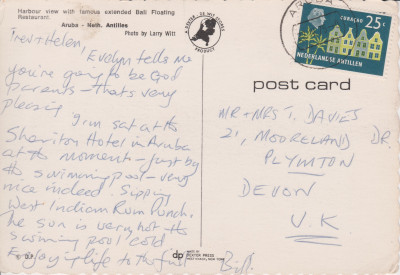 Harbour view with famous extended Bali Floating
Restaurant.
Aruba - Neth. Antilles
Photo by Larry Witt
A DEXTER DE WIT MOORS
PRODUCT
CURAÇAO 25c
NEDERLANDSE ANTILLEN
post card
Trev & Helen,
Evelyn tells me
you're going to be God
parents - that's very
pleasing
I'm sat at the
Sheraton Hotel in Aruba
at the moment - just by
the swimming pool - very
nice indeed. Sipping
West Indian Rum Punch.
The sun is very hot the
swimming pool cold
Enjoying life to the full
Bill.
MR + MRS T. DAVIES
21, MOORELAND DR.
PLYMTON
DEVON
U.K
dp
MADE BY
DEXTER PRESS
WEST NYACK, NEW YORK